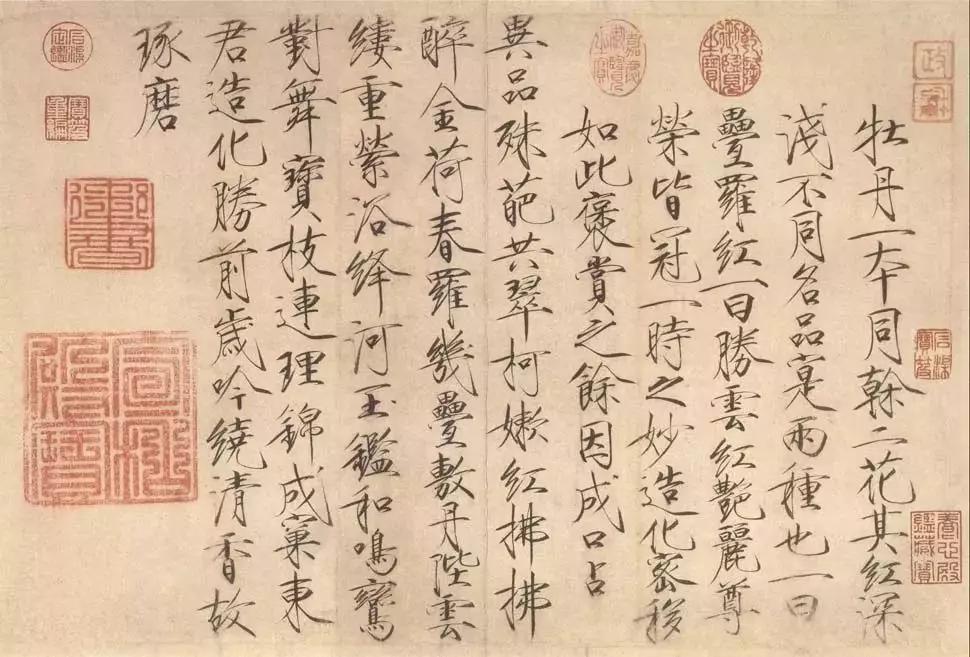 政和
牡丹一本同榦二花其紅深
淺不同名品寔兩種也一曰
疊羅紅一曰勝雲紅艷麗尊
榮皆冠一時之妙造化密移
如此褒賞之餘因成口占
異品殊葩共翠柯嫩紅拂拂
醉金荷春羅幾疊敷丹陛雲
縷重縈浴絳河玉鑑和鳴鸞
對舞寶枝連理錦成窠東
君造化勝前歲吟繞清香故
琢磨
乾隆御覽之寶
嘉慶御覽之寶
石渠寶笈
養心殿鑑藏寶
石渠定鑑
寶笈重編